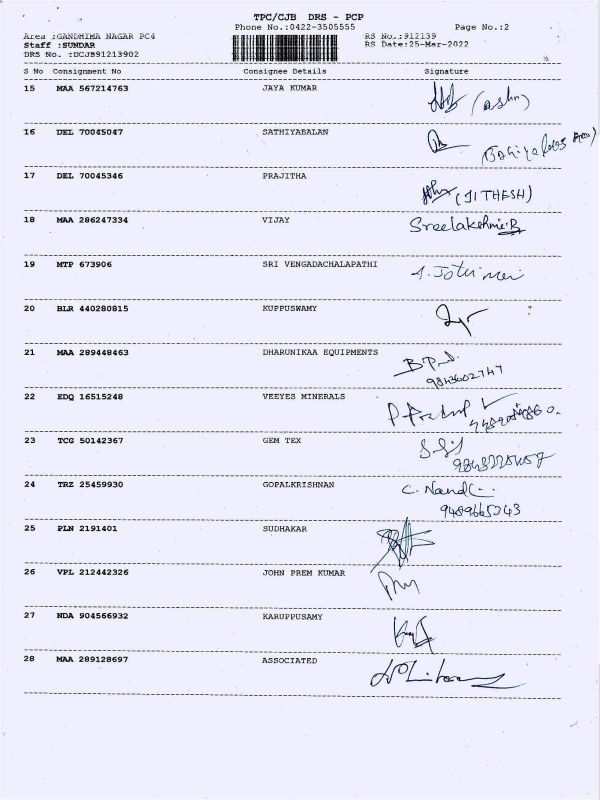 TPC/CJB DRS - PCP
Phone No.:0422-3505555 Page No.:2
Area :GANDHIMA NAGAR PC4 RS No.:912139
Staff :SUNDAR RS Date:25-Mar-2022
DRS No. :DCJB91213902
S No Consignment No Consignee Details Signature
15 MAA 567214763 JAYA KUMAR
16 DEL 70045047 SATHIYABALAN
17 DEL 70045346 PRAJITHA
(JITHESH)
18 MAA 286247334 VIJAY Sreelakshmi.B
19 MTP 673906 SRI VENGADACHALAPATHI
20 BLR 440280815 KUPPUSWAMY
21 MAA 289448463 DHARUNIKAA EQUIPMENTS
9843602747
22 EDQ 16515248 VEEYES MINERALS
23 TCG 50142367 GEM TEX
24 TRZ 25459930 GOPALKRISHNAN C. Nand
9489665243
25 PLN 2191401 SUDHAKAR
26 VPL 212442326 JOHN PREM KUMAR
27 NDA 904566932 KARUPPUSAMY
28 MAA 289128697 ASSOCIATED